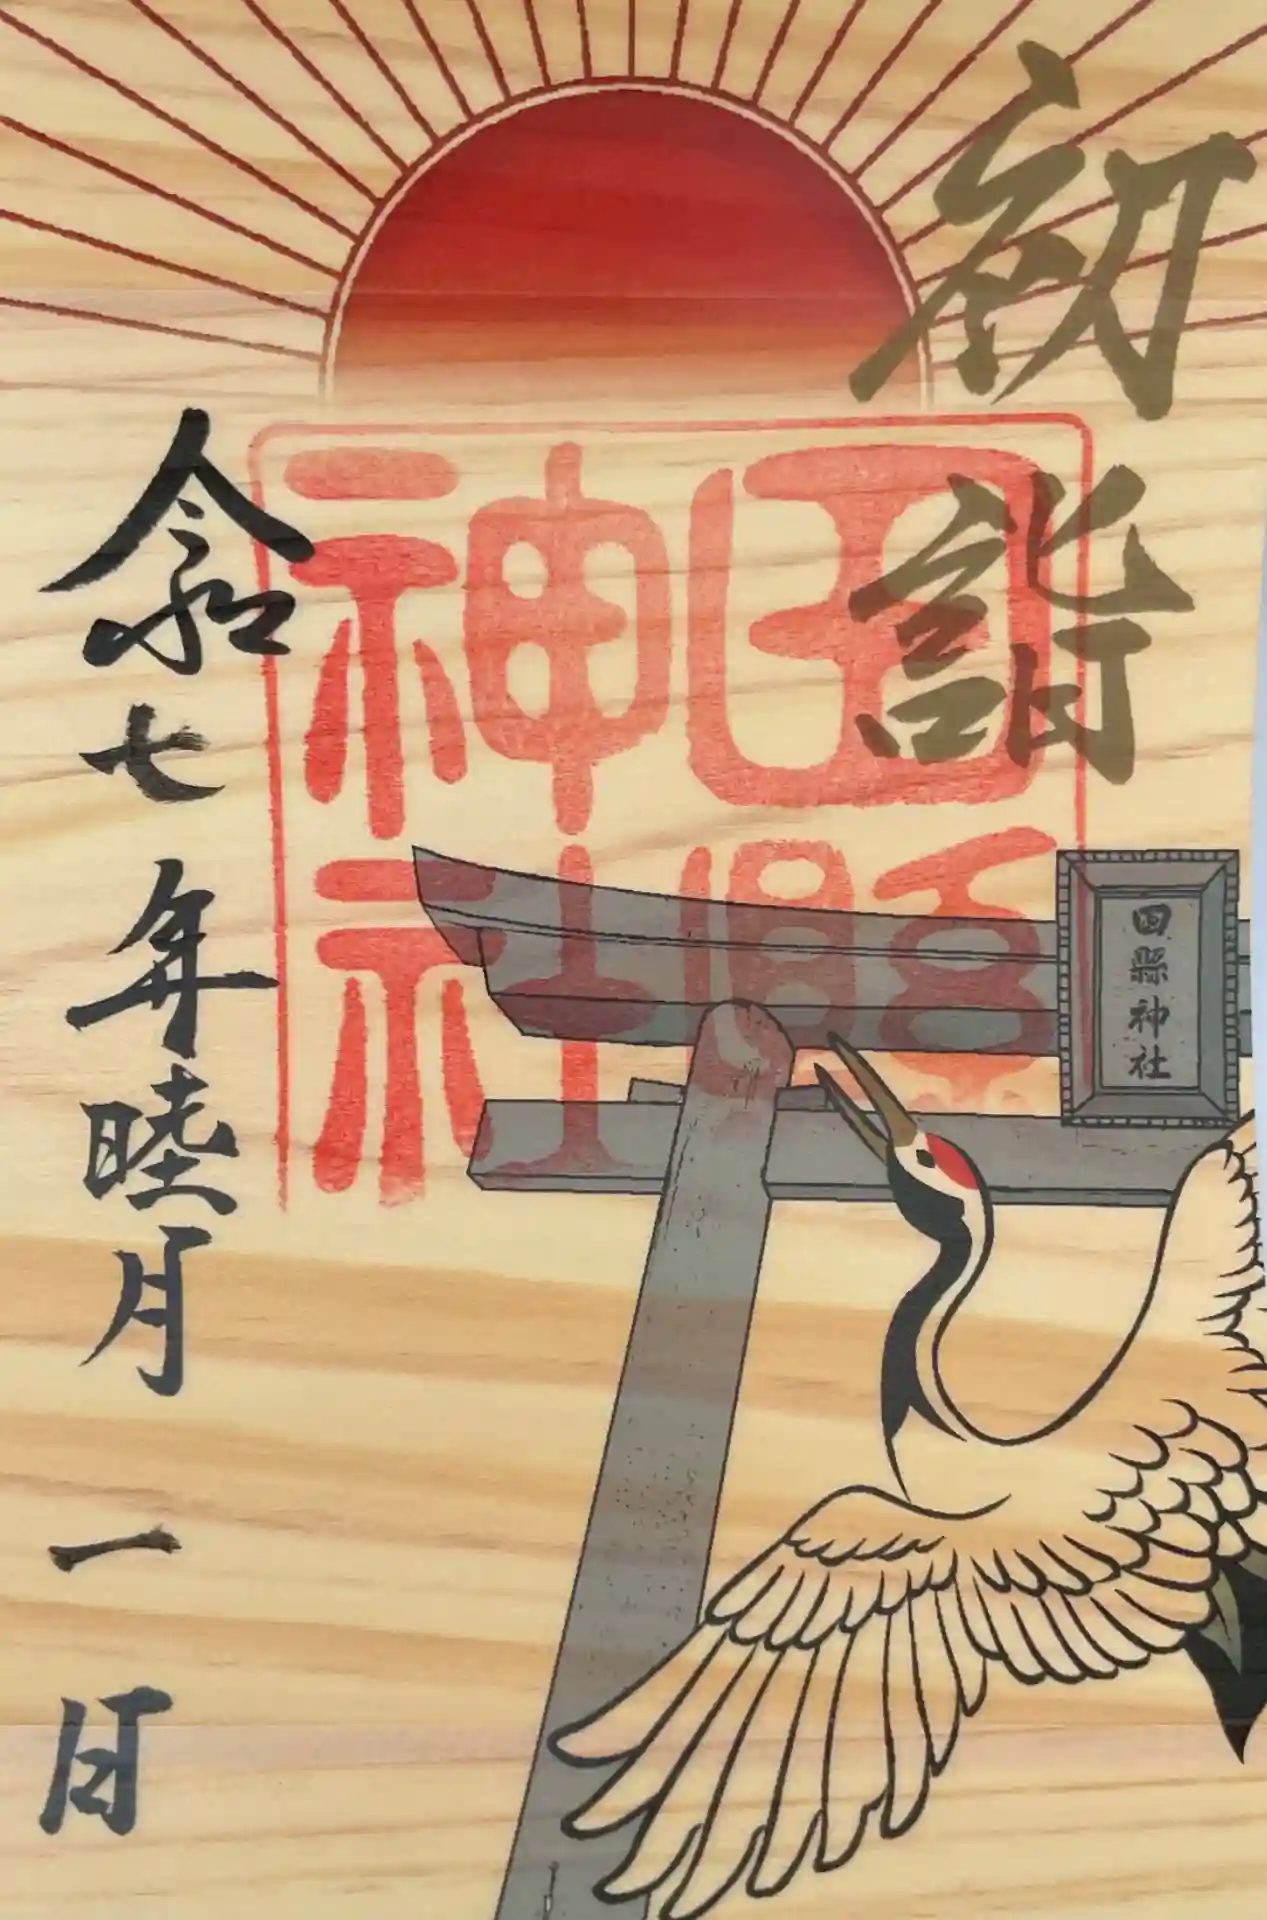 初詣
田縣
神社
田縣神社
令和七年睦月一日